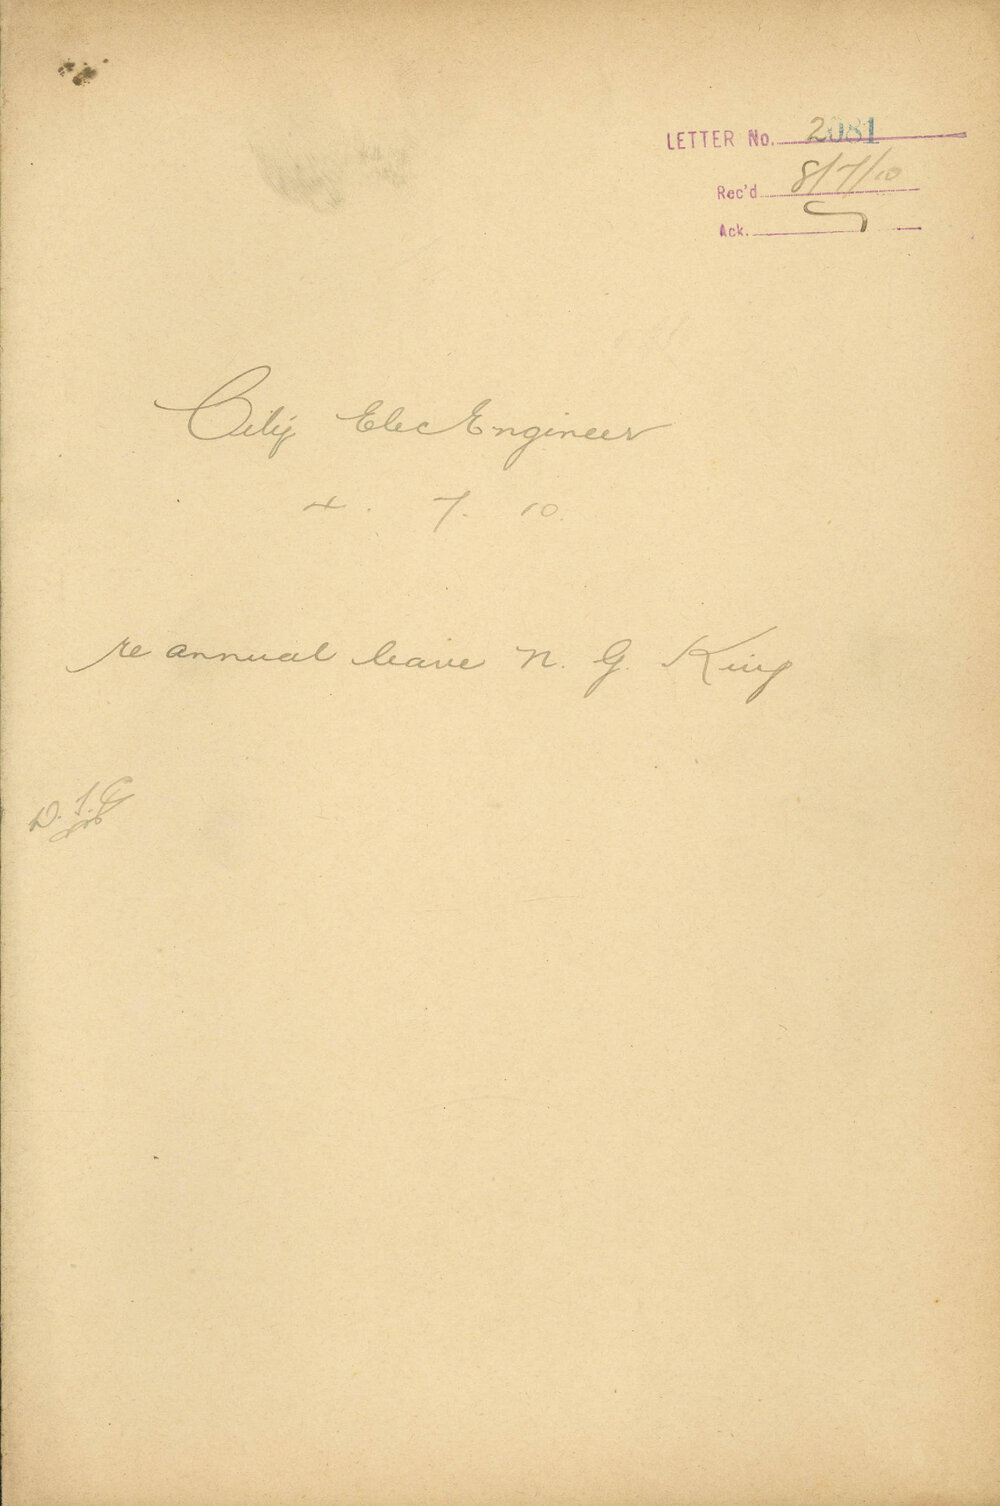 LETTER No. 2081
Rec'd 8/7/10
Ack.
City Elec Engineer
4. 7. 10.
re annual leave N. G. King